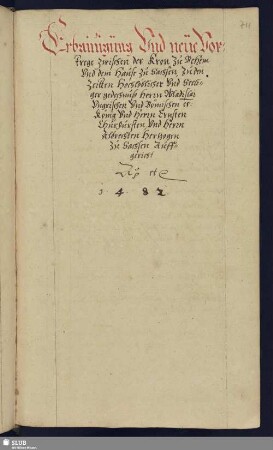 Erbainigung Und neue Vor-
trege zwischen der Kron zu Behem
Und dem Hause zu Sachsen, zu den
Zeitten Hochlöblicher Und Seeli-
ger gedechtnuß Herrn Wladislai
Ungrischen Und Bömischen etc.
König Und Herrn Ernsten
Churfürsten Und Herrn
Albrechten Hertzogen
zu Sachsen Auff-
gericht
1482
SLUB